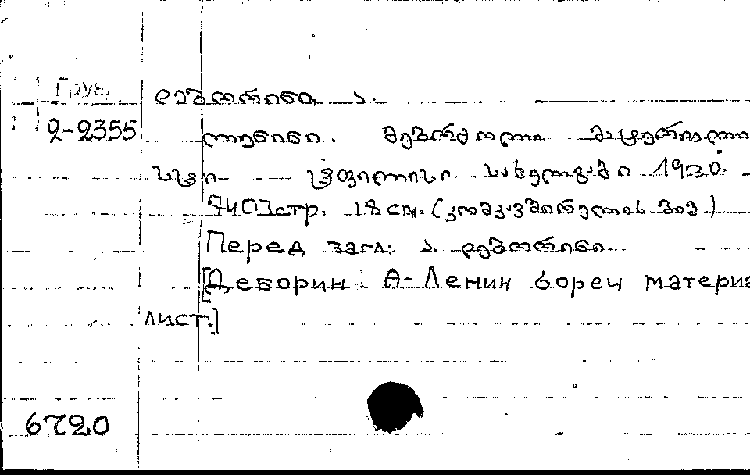 Груз.
დებორინი ა.
2-2355
ლენინი. მებრძოლი მატერიალი
სტი ტფილისი სახელგამი 1930.
74 01 стр. 18 см. (კომკავშირელის ბიბ)
Перед загл: ა. დებორინი.
[Деборин А- Ленин борец материа
лист.]
6720